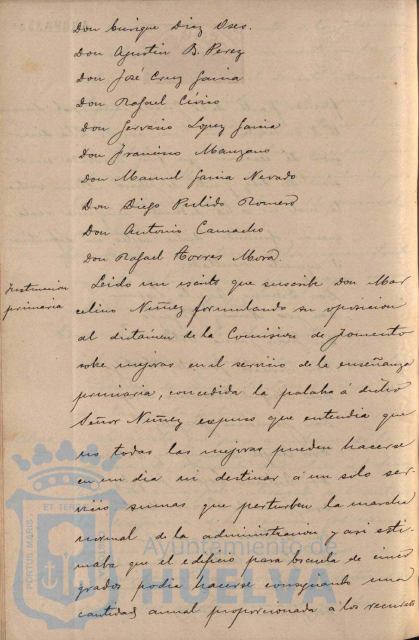 Don Enrique Diaz Oses.
Don Agustin B. Perez
Don José Cruz Garcia
Don Rafael
Don Gervasio Lopez Garcia
Don Francisco Manzano
Don Manuel Garcia Nevado
Don Diego Pulido Romero
Don Antonio Camacho
Don Rafael Torres Mora.
Instruccion
primaria
Leido un escrito que suscribe Don Mar
celino Nuñez formulando su oposicion
al dictámen de la Comision de Fomento
sobre mejoras en el servicio de la enseñanza
primaria, concedida la palabra á dicho
Señor Nuñez expuso que entendia que
no todas las mejoras pueden hacerse
en un dia ni destinar á un solo ser-
vicio sumas que perturben la marcha
normal de la administracion y asi esti-
maba que el edificio para Escuela de cinco
grados podia hacerse consignando una
cantidad anual proporcionada a los recursos
Ayuntamiento de
HUELVA
PORTUS MARIS
ET TERRAE